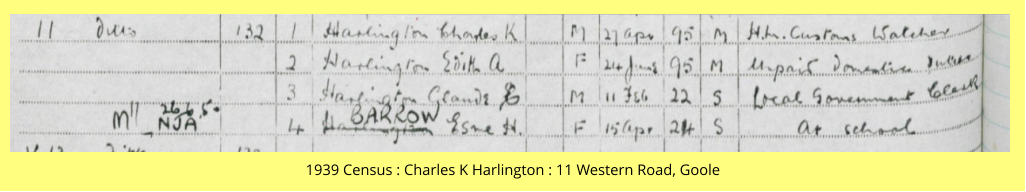 11 Ditto 132 1 Harlington Charles K M 27 Apr 95 M H.M. Customs Watcher
2 Harlington Edith A F 24 June 95 M Unpaid Domestic Duties
3 Harlington Claude M 11 Feb 22 S Local Government Clerk
M11 26.6.50 BARROW
NJA 4 Harlington Esme H. F 15 Apr 24 S At school
1939 Census : Charles K Harlington : 11 Western Road, Goole